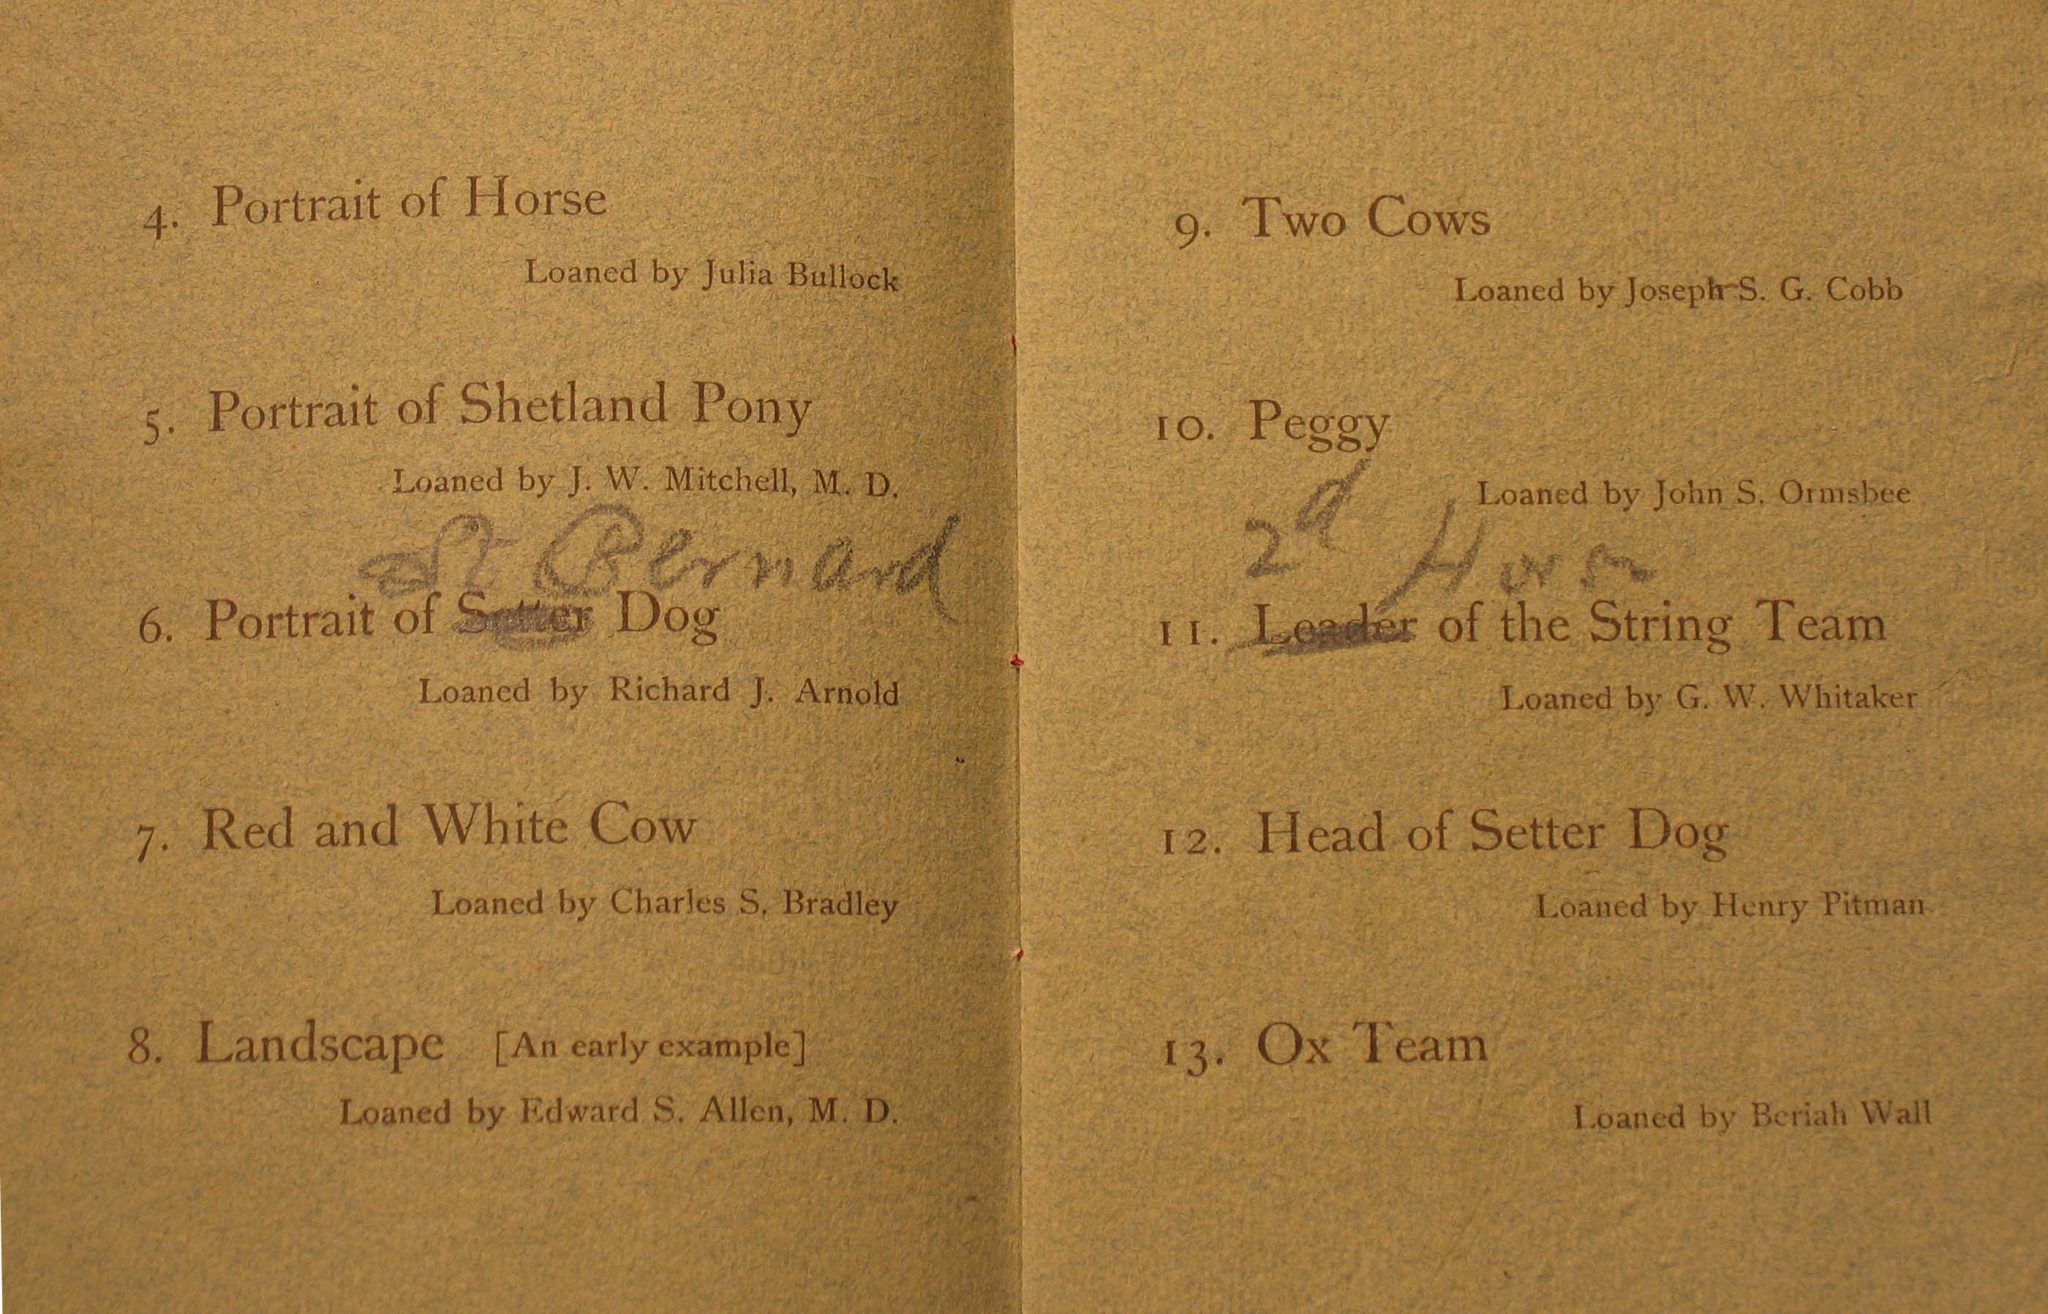 4. Portrait of Horse
Loaned by Julia Bullock
5. Portrait of Shetland Pony
Loaned by J. W. Mitchell, M. D.
St Bernard
6. Portrait of Setter Dog
Loaned by Richard J. Arnold
7. Red and White Cow
Loaned by Charles S. Bradley
8. Landscape [An early example]
Loaned by Edward S. Allen, M. D.
9. Two Cows
Loaned by Joseph S. G. Cobb
10. Peggy
Loaned by John S. Ormsbee
2d Horse
11. Leader of the String Team
Loaned by G. W. Whitaker
12. Head of Setter Dog
Loaned by Henry Pitman
13. Ox Team
Loaned by Beriah Wall